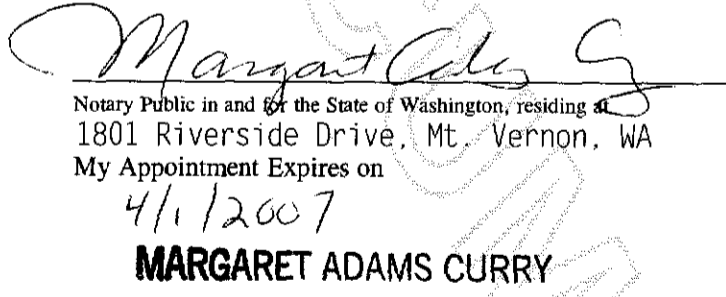 Margaret Adams Curry
Notary Public in and for the State of Washington, residing at
1801 Riverside Drive, Mt. Vernon, WA
My Appointment Expires on
4/1/2007
MARGARET ADAMS CURRY